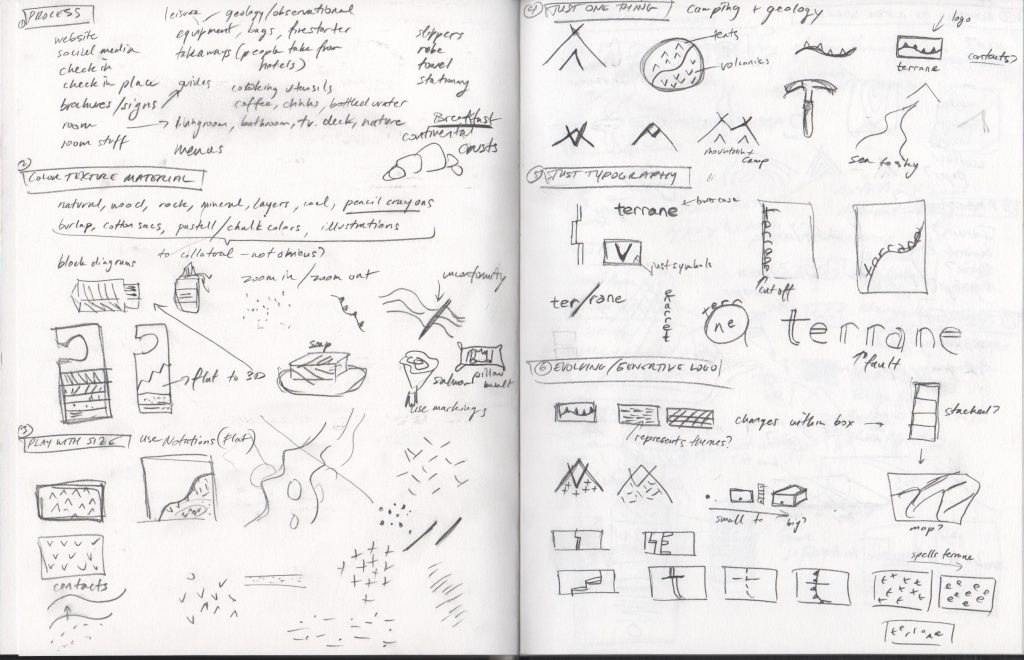 ① PROCESS
website
social media
check in
check in place
brochures/signs
room
room stuff
leisure
geology/observational
equipment, bags, firestarter
takeaways (people take from
hotels)
guides
cooking utensils
coffee, drinks, bottled water
livingroom, bathroom, tv. deck, nature
menus
slippers
robe
towel
stationary
Breakfast
continental
crusts
②
COLOR TEXTURE MATERIAL
natural, wood, rock, mineral, layers, coal, pencil crayons
burlap, cotton sacs, pastell/chalk colors, illustrations
to collateral - not obvious?
block diagrams
zoom in / zoom out
unconformity
flat to 3D
soap
salmon
pillow
basalt
use markings
③
PLAY WITH SIZE
use Notations (flat)
contacts
④ JUST ONE THING
camping + geology
tents
volcanics
logo
terrane
contacts?
mountain +
camp
sea to sky
⑤ JUST TYPOGRAPHY
terrane
lowercase
just symbols
terrane
cut off
terrane
ter/rane
terrane
terr
ne
terrane
fault
⑥ EVOLVING/GENERTIVE LOGO
represents themes?
changes within box
stacked?
small to big?
map?
spells terrane
t t t t t
e e e e e
terrane